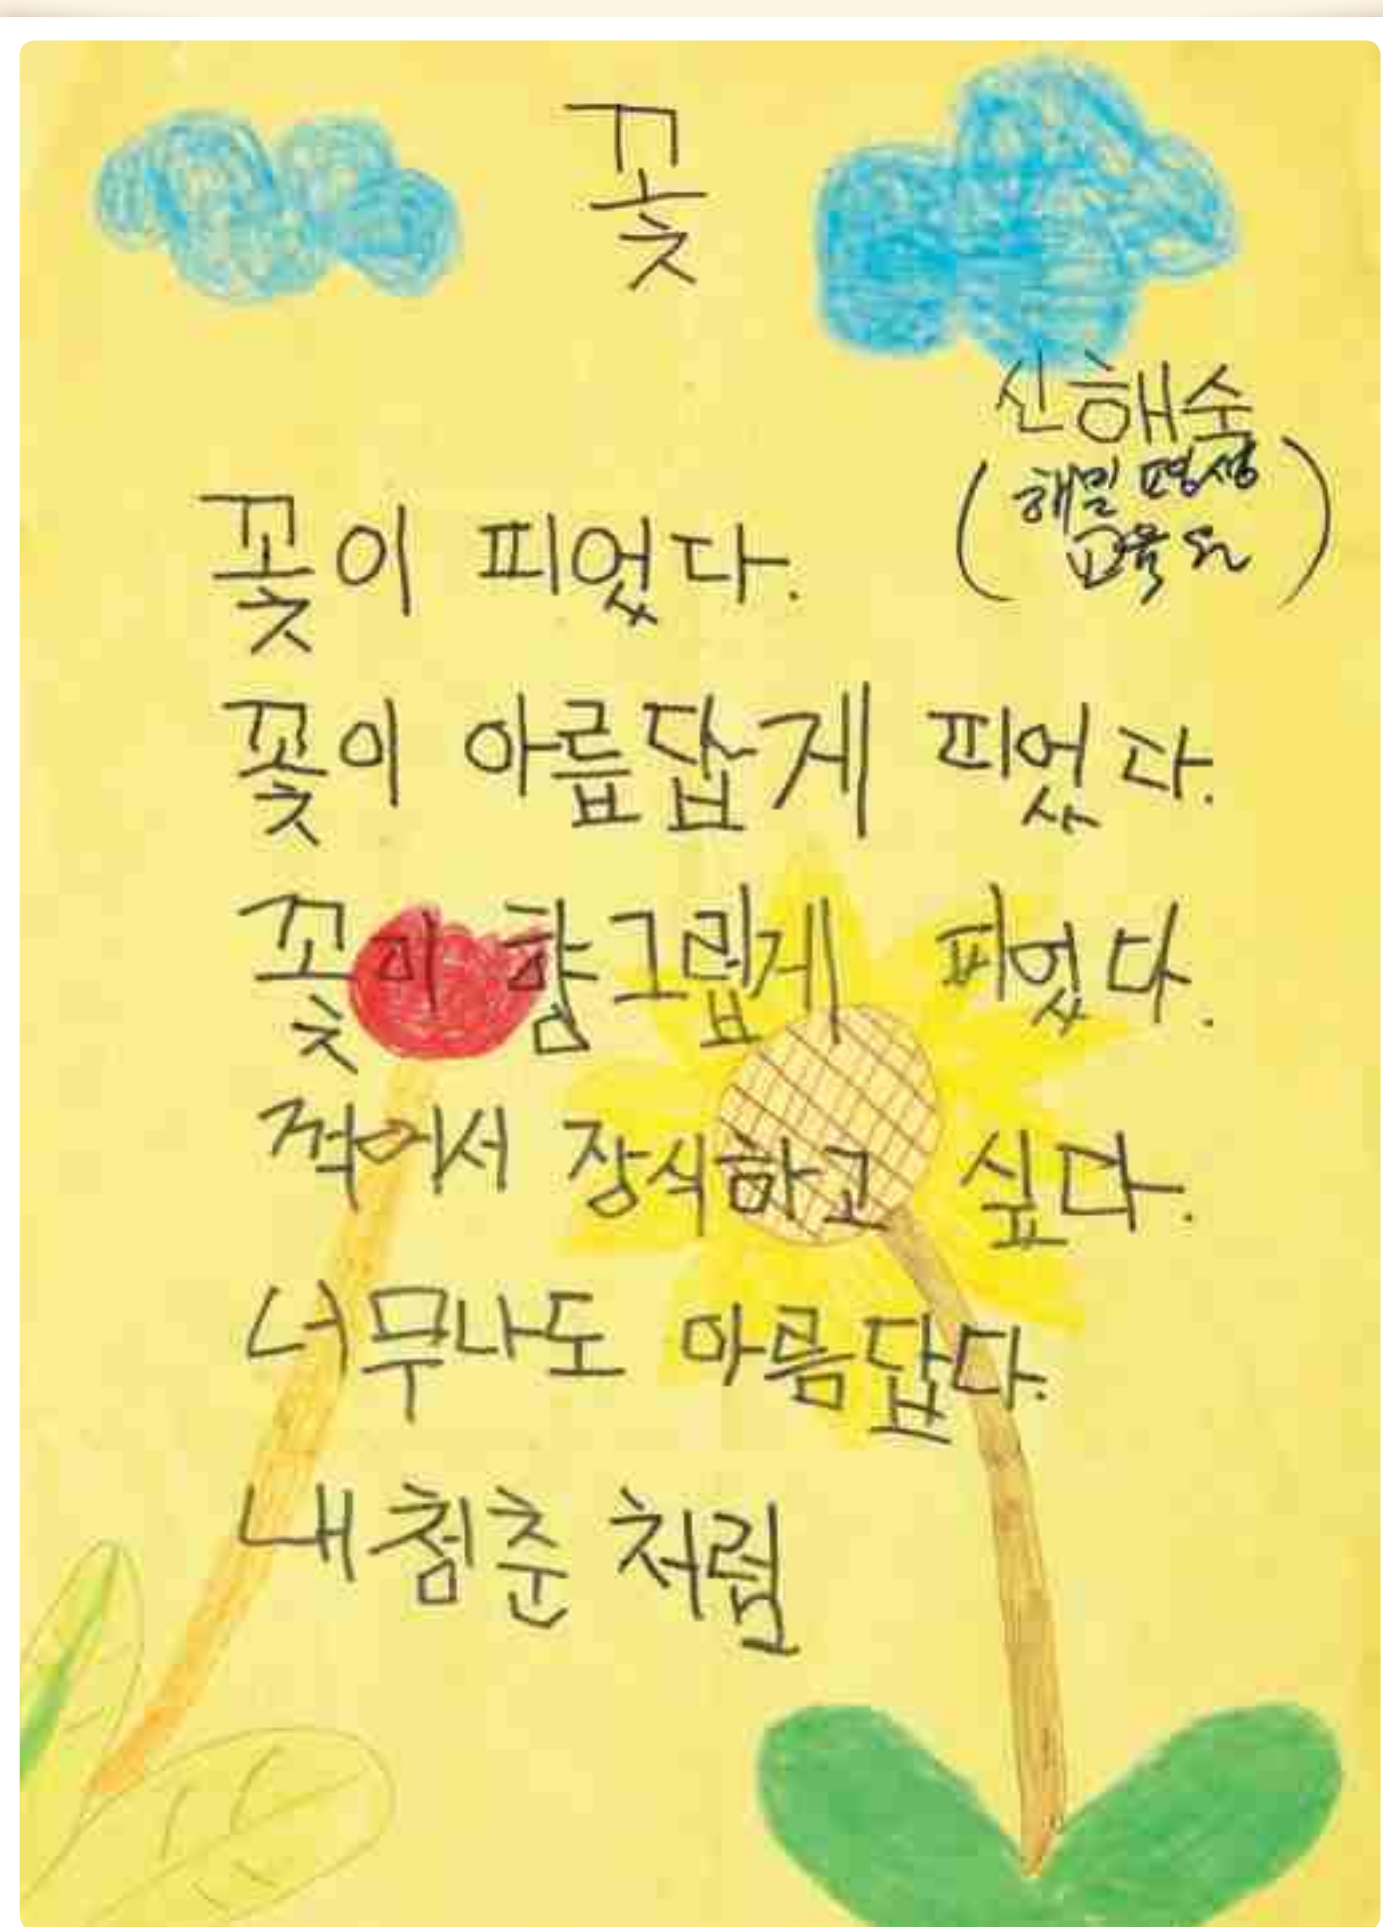 꽃
신해숙
(해밀 평생
교육원)
꽃이 피었다.
꽃이 아름답게 피었다.
꽃이 향그럽게 피었다.
꺽어서 장식하고 싶다.
너무나도 아름답다.
내 청춘 처럼